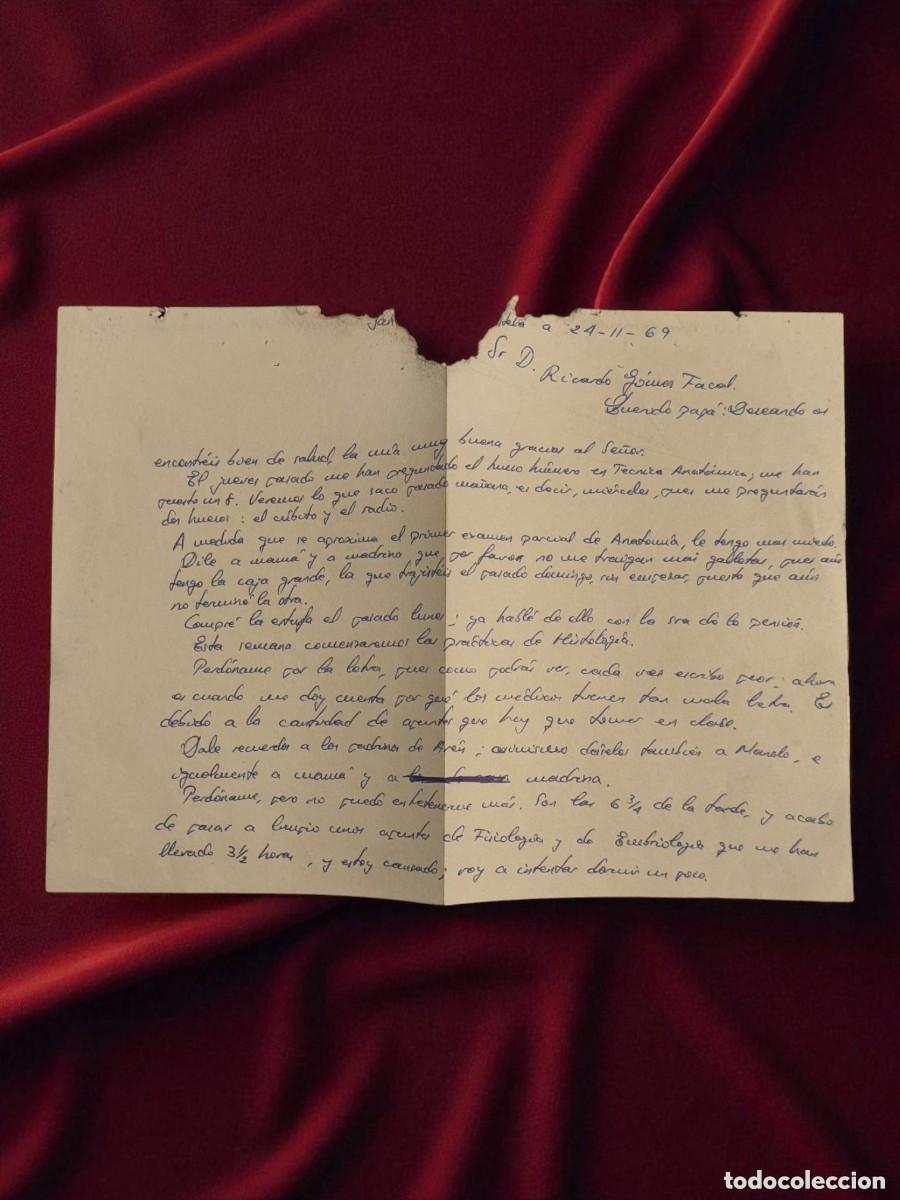 San
a 24-11-69
Sr D.
Ricardo Gómez Facal.
Querido papá: Deseando os
encontréis bien de salud, la mía muy buena gracias al Señor.
El jueves pasado me han preguntado el hueso húmero en Técnica Anatómica; me han
puesto un 8. Veremos lo que saco pasado mañana, es decir, miércoles, pues me preguntarán
dos huesos: el cúbito y el radio.
A medida que se aproxima el primer examen parcial de Anatomía, le tengo mas miedo.
Dile a mamá y a madrina que, por favor, no me traigan más galletas, pues aún
tengo la caja grande, la que trajisteis el pasado domingo, sin empezar, puesto que aún
no terminé la otra.
Compré la estufa el pasado lunes; ya hablé de ello con la sra de la pensión.
Esta semana comenzaremos las prácticas de Histología.
Perdóname por la letra, pues como podrás ver, cada vez escribo peor; ahora
es cuando me doy cuenta por qué los médicos tienen tan mala letra. Es
debido a la cantidad de apuntes que hay que tomar en clase.
Dale recuerdos a los padrinos de ; asimismo dáselos también a Manolo, e
igualmente a mamá y a madrina.
Perdóname, pero no puedo entretenerme más. Son las 6 3/4 de la tarde, y acabo
de pasar a limpio unos apuntes de Fisiología y de Embriología que me han
llevado 3 1/2 horas, y estoy cansado; voy a intentar dormir un poco.
todocoleccion